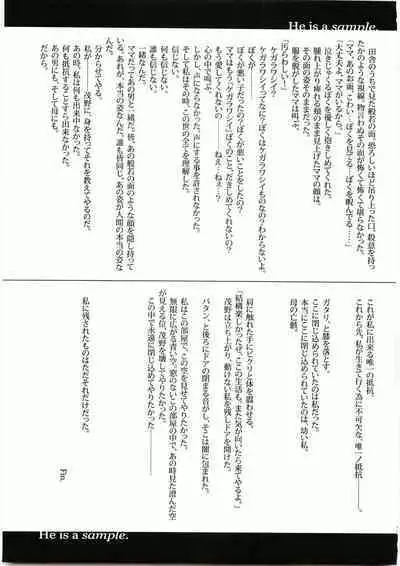 He is a sample.
田舎のうちで見た般若の面。恐ろしいほど吊り上った口。殺意を持っ
たかのような視線。物言わぬその面が怖くて怖くて堪らなかった。
「ママ、あのお面、こわいよ。ぼくを見てるよ。ぼくを睨んでる……」
「大丈夫よ、ママがいるから」
泣きじゃくるぼくを優しく抱きしめてくれた。
腫れ上がり痺れる頬のまま見上げたママの顔は、
その面の姿そのままだった。
服を脱がしたママは叫ぶ。
「汚らわしい！」
ケガラワシイ？
ぼくが？
ケガラワシイってなに？ぼくはケガラワシイものなの？わからないよ。
ぼくが悪い子だったの？ぼくが悪いことをしたの？
ママはもう「ケガラワシイ」ぼくのこと、だきしめてくれないの？
もう愛してくれないの――ねぇ？――ねぇ――？
心の中で叫ぶ。
声にならなかった。声にする事を許されなかった。
そして私はその時、この世の全てを理解した。
信じない。
誰も信じない。
一緒なんだ。
ママだってあの男と一緒だ。皆、あの般若の面のような顔を隠し持って
いる。あれが、本当の姿なんだ。誰も皆同じ。あの姿が人間の本当の姿な
んだ。
分からせてやる。
私が――茂野に、身を持ってそれを教えてやるのだ。
あの時、私は何も出来なかった。
何も抵抗することすら出来なかった。
あの男にも、そして月にも。
だから。
これが私に出来る唯一の抵抗。
これから先、私が生きて行く為に不可欠な、唯一ノ抵抗――
ガタリ、と膝を落とす。
ここに閉じ込められていたのは私だった。
本当にここに閉じ込められていたのは、幼い私。
母の亡骸。
肩に触れた手にビクリと体を震わせる。
「結構楽しかったぜ、ここの生活も。また気が向いたら来てやるよ。」
茂野は立ち上がり、動けない私を残しドアを開けた。
バタン、と後ろにドアの閉まる音がし、そこは闇に包まれた。
私はこの部屋で、この空を見せてやりたかった。
無限に広がる青い空。窓のないこの部屋の中で、あの時見た澄んだ空
が見える位、茂野を壊してやりたかった。
この中で永遠に閉じ込めてやりたかった――
私に残されたものはただそれだけだった。
Fin.
He is a sample.